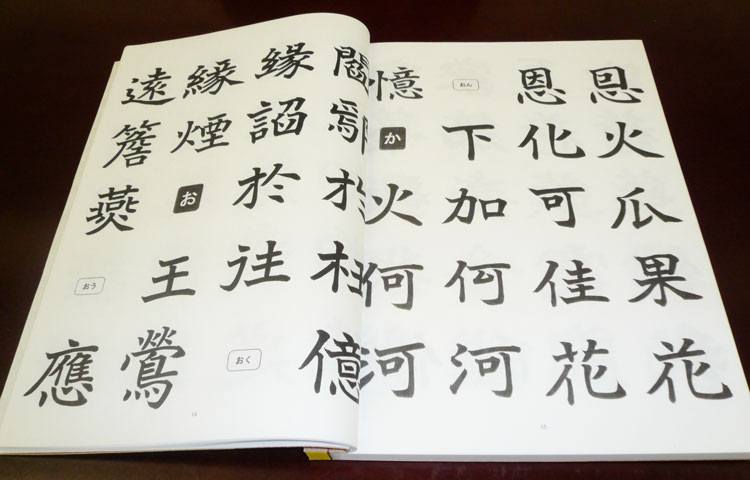 遠 縁 縁 閻
簷 煙 鄢
燕 お 於 於
おう 王 往 枉
應 鶯 おく 億
14
憶 おん 恩 恩
か 下 化 火
火 加 可 瓜
何 何 佳 果
河 河 花 花
15